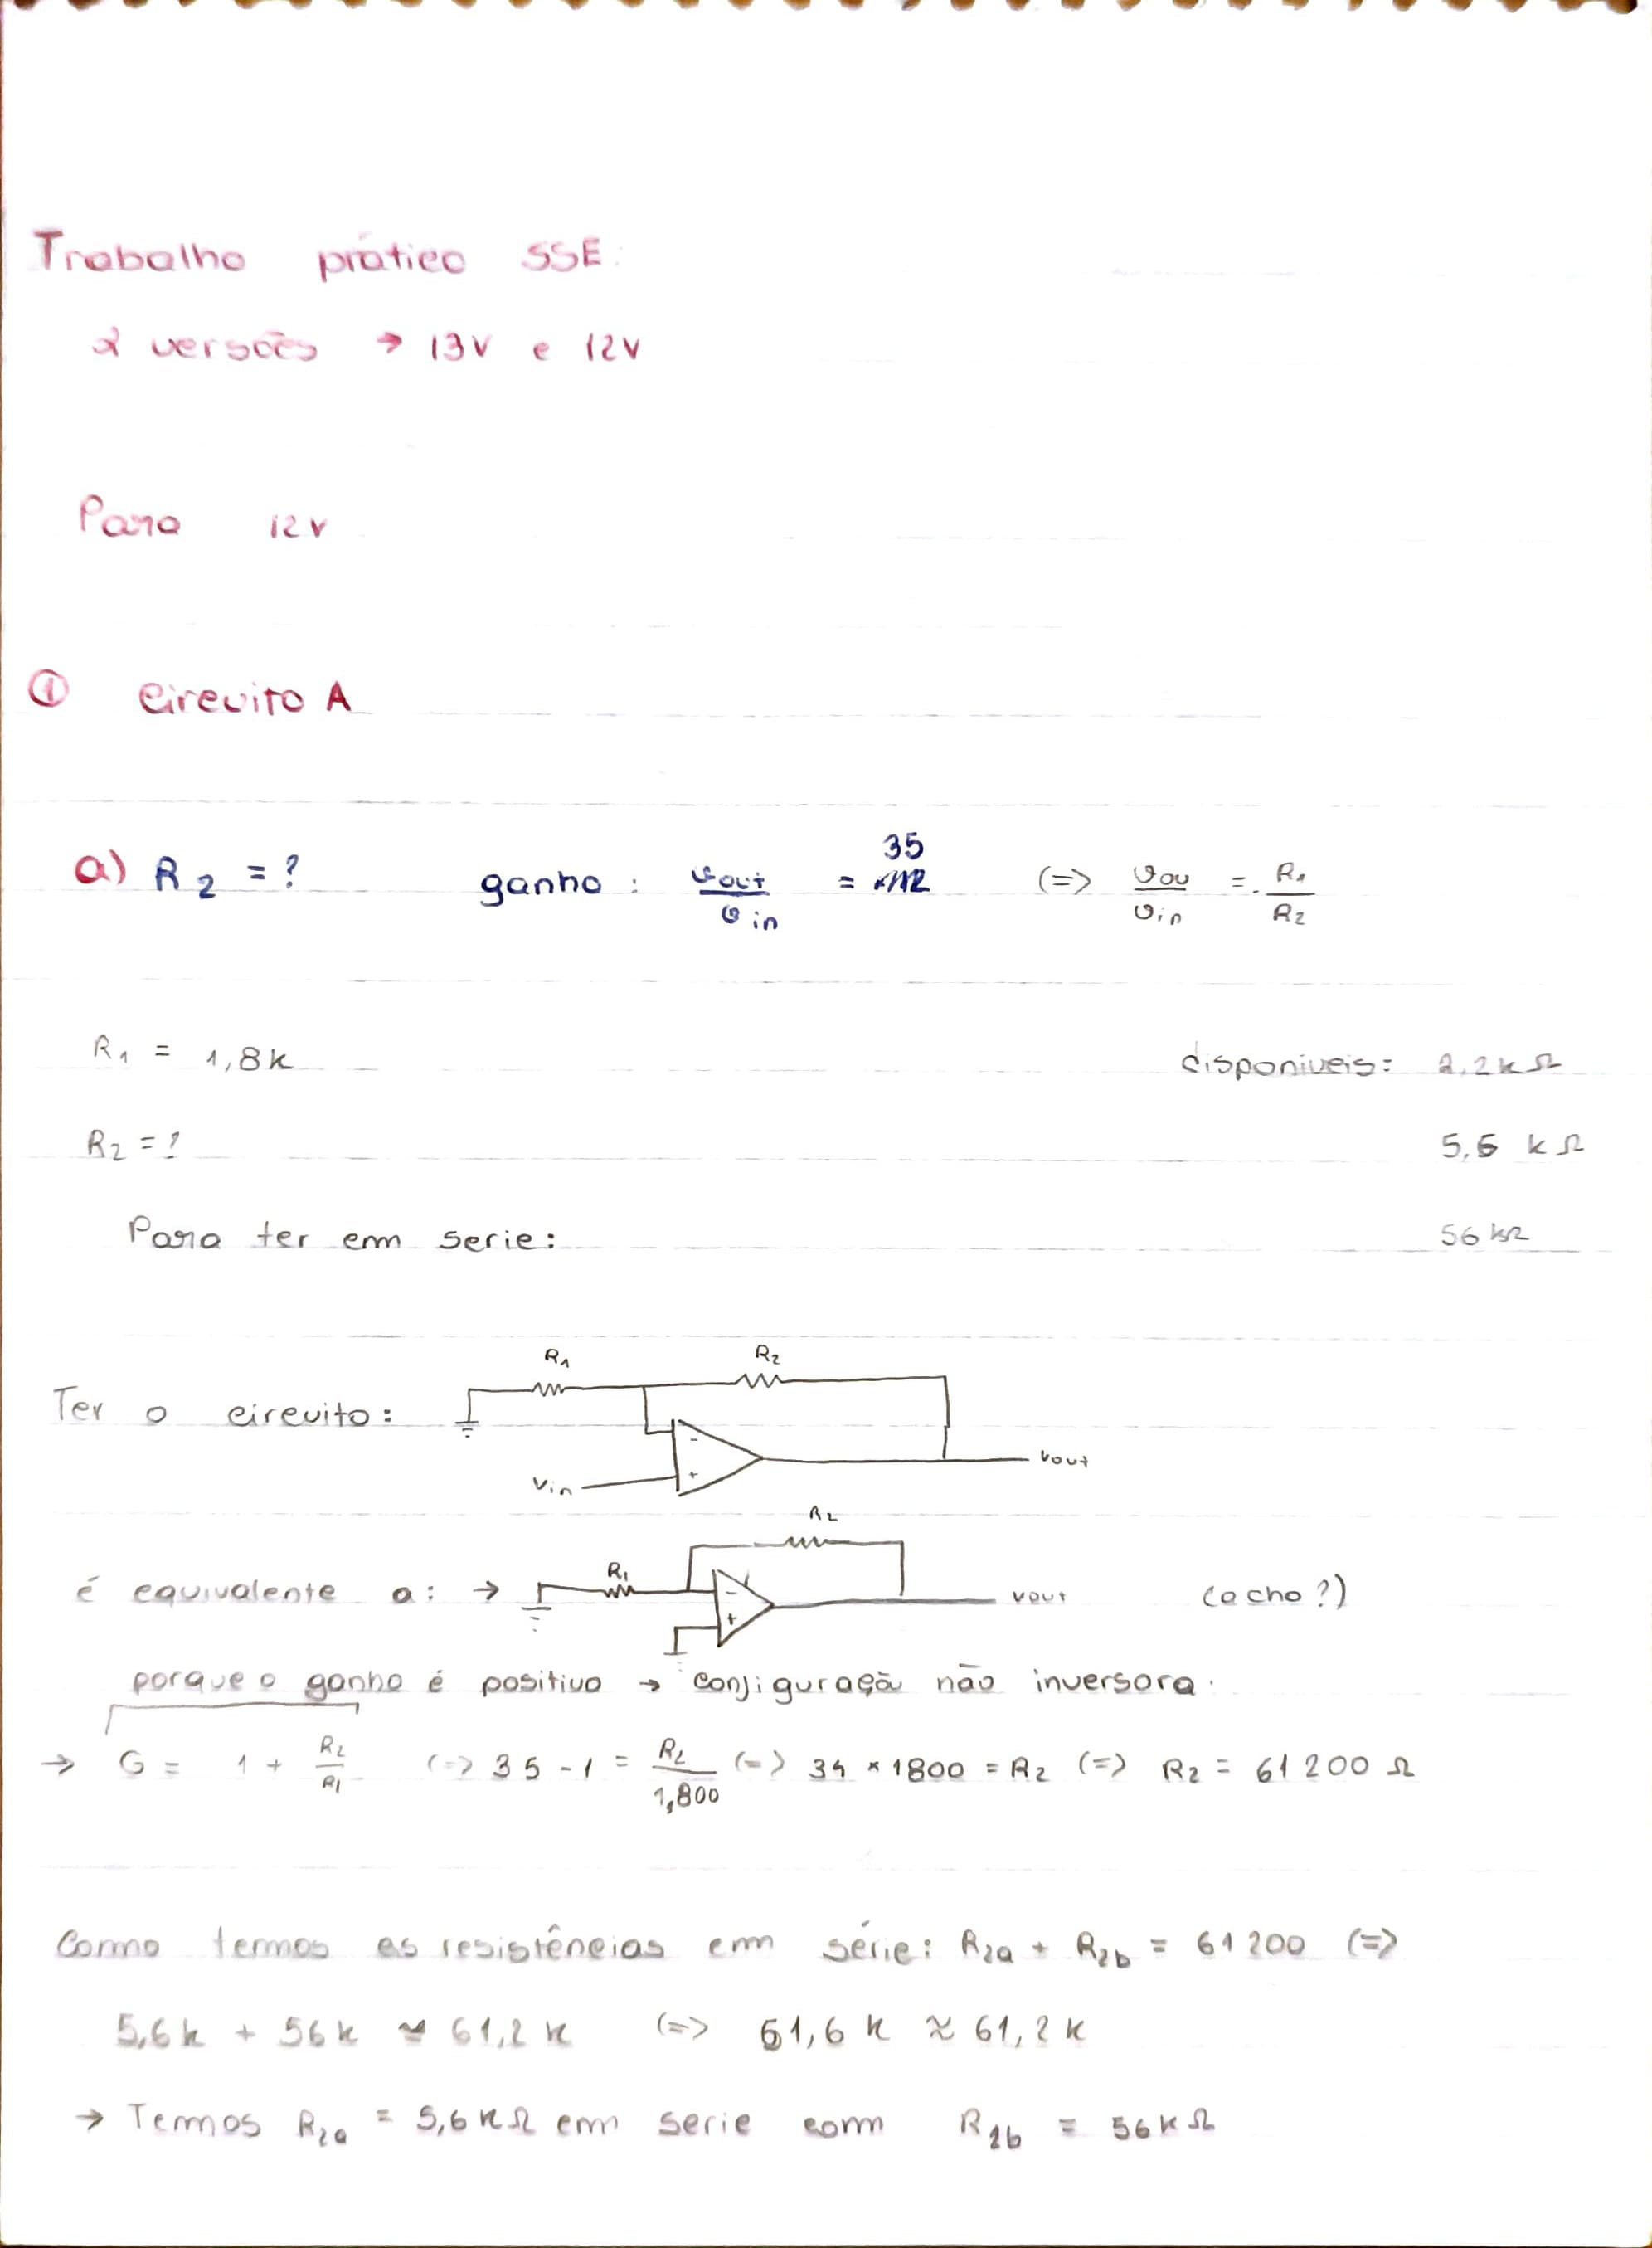 Trabalho prático SSE:
2 versões → 13V e 12V
Para 12V
① Circuito A
35
a) R2 = ? ganho : vout/vin = (=>) vou/vin = - R1/R2
R1 = 1,8k disponiveis: 2,2kΩ
R2 = ? 5,6 kΩ
Para ter em serie: 56kΩ
R1 R2
Ter o circuito: - + vout
Vin
R2
R1
é equivalente a: → - + vout (acho?)
porque o ganho é positivo → configuração não inversora.
→ G = 1 + R2/R1 (=) 35 - 1 = R2/1,800 (=) 34 × 1800 = R2 (=) R2 = 61 200 Ω
Como temos as resistências em série: R2a + R2b = 61 200 (=>
5,6k + 56k ≈ 61,2k (=> 61,6 k ≈ 61,2 k
→ Temos R2a = 5,6kΩ em serie com R2b = 56kΩ